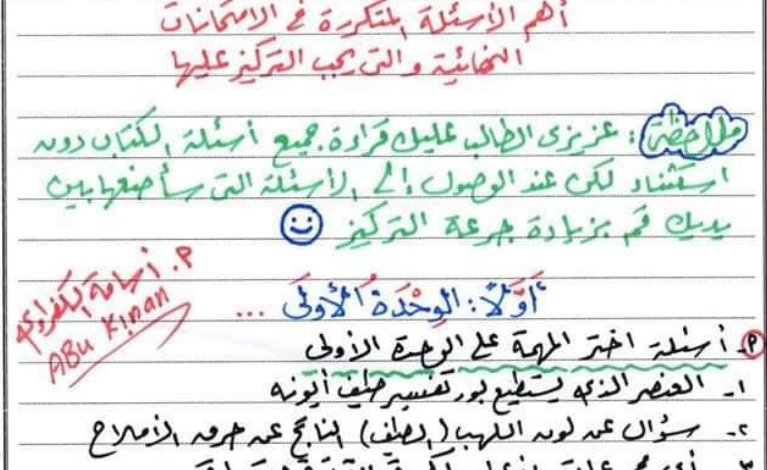 أهم الأسئلة المتكررة في الامتحانات
النهائية والتي يجب التركيز عليها
ملاحظة : عزيزي الطالب عليك قراءة جميع أسئلة الكتاب دون
استثناء لكن عند الوصول إلى الأسئلة التي سأضعها بين
يديك قم بزيادة جرعة التركيز
م. أسامة
ABU Kinan
أَوَّلًا: الوِحْدَةُ الأُولَى ...
م. أسئلة اختر المهمة على الوحدة الأولى
١- العنصر الذي يستطيع بور تفسير طيف أيونه
٢- سؤال عن لون اللهب (الطيف) الناتج عن حرق الأملاح